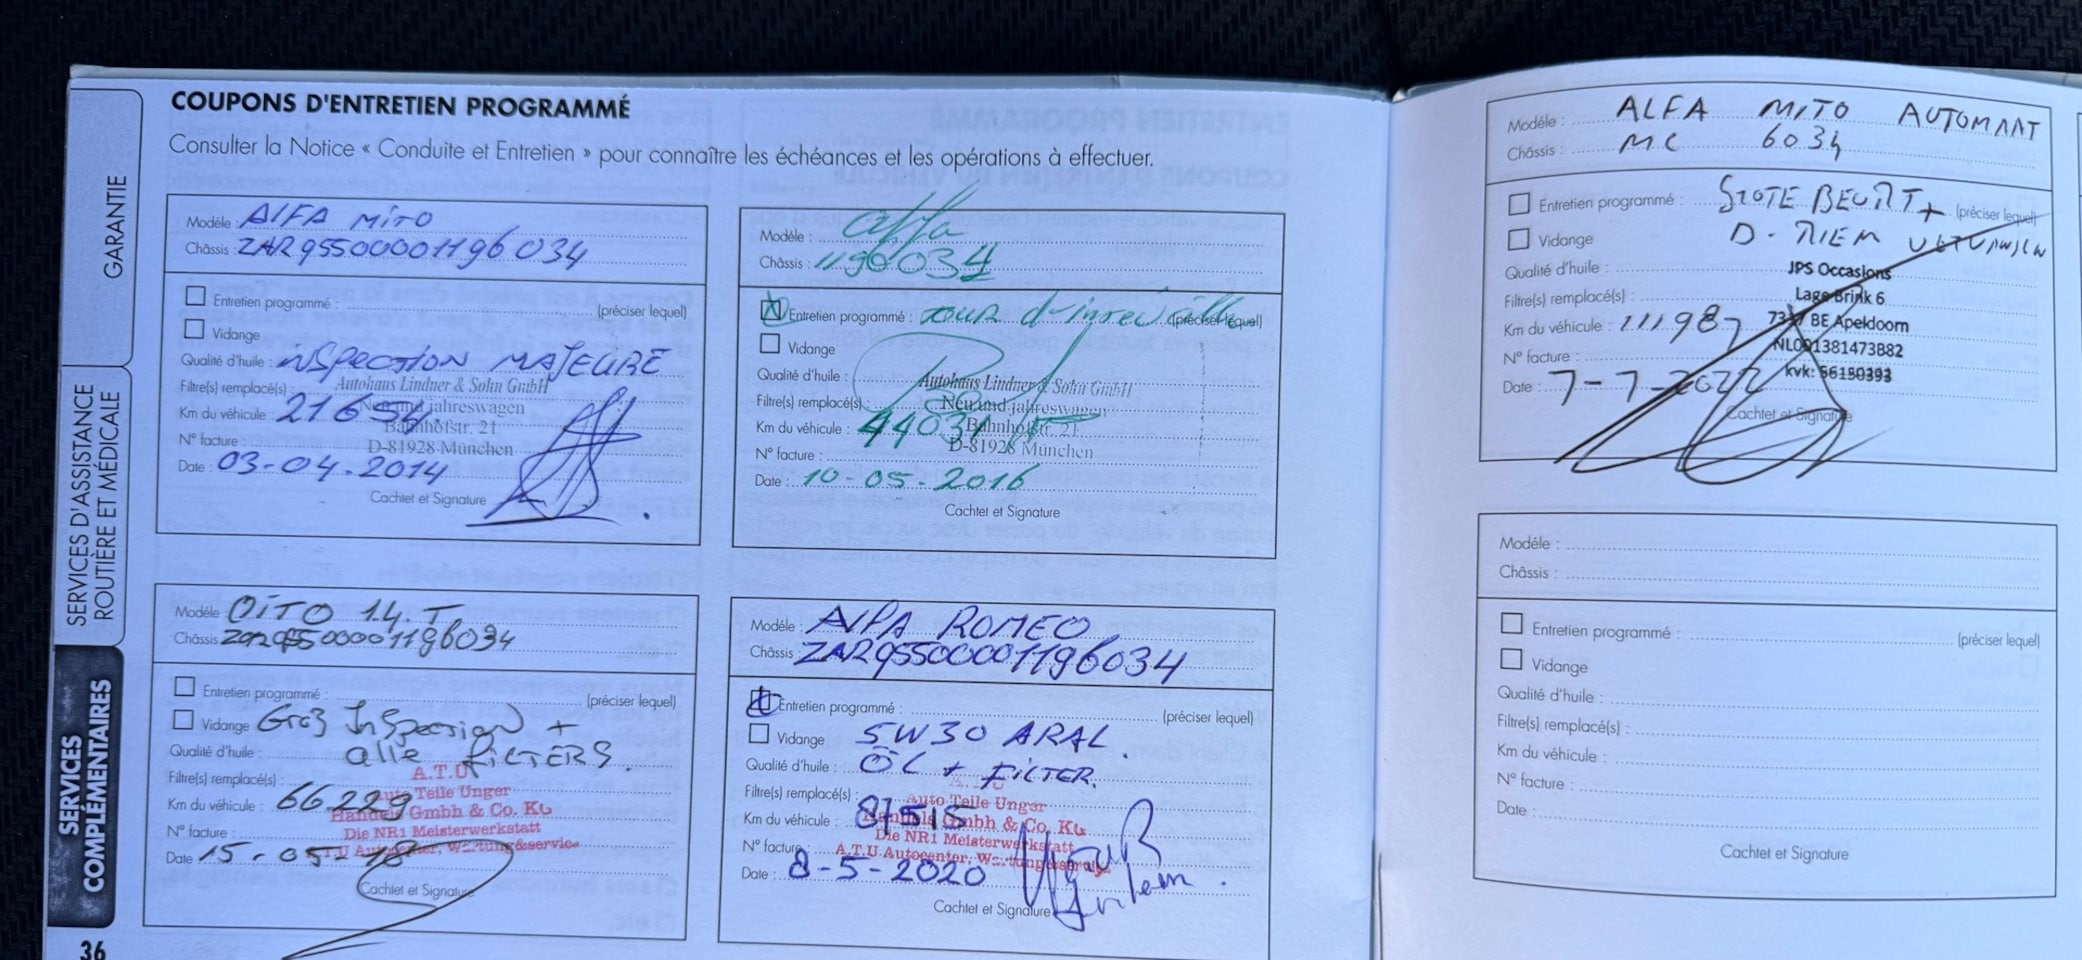 COUPONS D'ENTRETIEN PROGRAMMÉ
Consulter la Notice « Conduite et Entretien » pour connaître les échéances et les opérations à effectuer.
GARANTIE
SERVICES D'ASSISTANCE
ROUTIÈRE ET MÉDICALE
SERVICES
COMPLÉMENTAIRES
36
Modéle : AlFA MiTO
Châssis : ZAR95500001196034
Entretien programmé : (préciser lequel)
Vidange
Qualité d'huile : iNSPECTION MAJEURE
Filtre(s) remplacé(s) : Autohaus Lindner & Sohn GmbH
Neu und jahreswagen
Km du véhicule : 21654
Bahnhofstr. 21
N° facture : D-81928 München
Date : 03-04-2014
Cachtet et Signature
Modéle : alfa
Châssis : 1196034
Entretien programmé : (préciser lequel)
Vidange
Qualité d'huile :
Autohaus Lindner & Sohn GmbH
Filtre(s) remplacé(s) : Neu und jahreswagen
Km du véhicule : 44031 Bahnhofstr. 21
N° facture : D-81928 München
Date : 10-05-2016
Cachtet et Signature
Modéle OiTO 1.4. T
Châssis ZAR95500001196034
Entretien programmé : (préciser lequel)
Vidange Groß Inspection +
Qualité d'huile : alle FiLTERS.
A.T.U
Filtre(s) remplacé(s) : Auto Teile Unger
Km du véhicule : 66229
Handels Gmbh & Co. KG
N° facture : Die NR1 Meisterwerkstatt
A.T.U Autocenter, Wartung&service
Date 15-05-18
Cachtet et Signature
Modéle : AlFA ROMEO
Châssis ZAR95500001196034
Entretien programmé : (préciser lequel)
Vidange 5W30 ARAL.
Qualité d'huile : ÖL + FiLTER.
Filtre(s) remplacé(s) : Auto Teile Unger
Km du véhicule : 81515
Handels Gmbh & Co. KG
N° facture : Die NR1 Meisterwerkstatt
A.T.U Autocenter, Wartung&service
Date : 8-5-2020
Cachtet et Signature
Modéle : ALFA MITO AUTOMAAT
Châssis : MC 6034
Entretien programmé : GROTE BEURT + (préciser lequel)
Vidange D-RIEM
Qualité d'huile : JPS Occasions
Filtre(s) remplacé(s) : Lage Brink 6
Km du véhicule : 111987
BE Apeldoorn
N° facture : NL001381473B82
kvk: 56150393
Date : 7-7-2022
Cachtet et Signature
Modéle :
Châssis :
Entretien programmé : (préciser lequel)
Vidange
Qualité d'huile :
Filtre(s) remplacé(s) :
Km du véhicule :
N° facture :
Date :
Cachtet et Signature